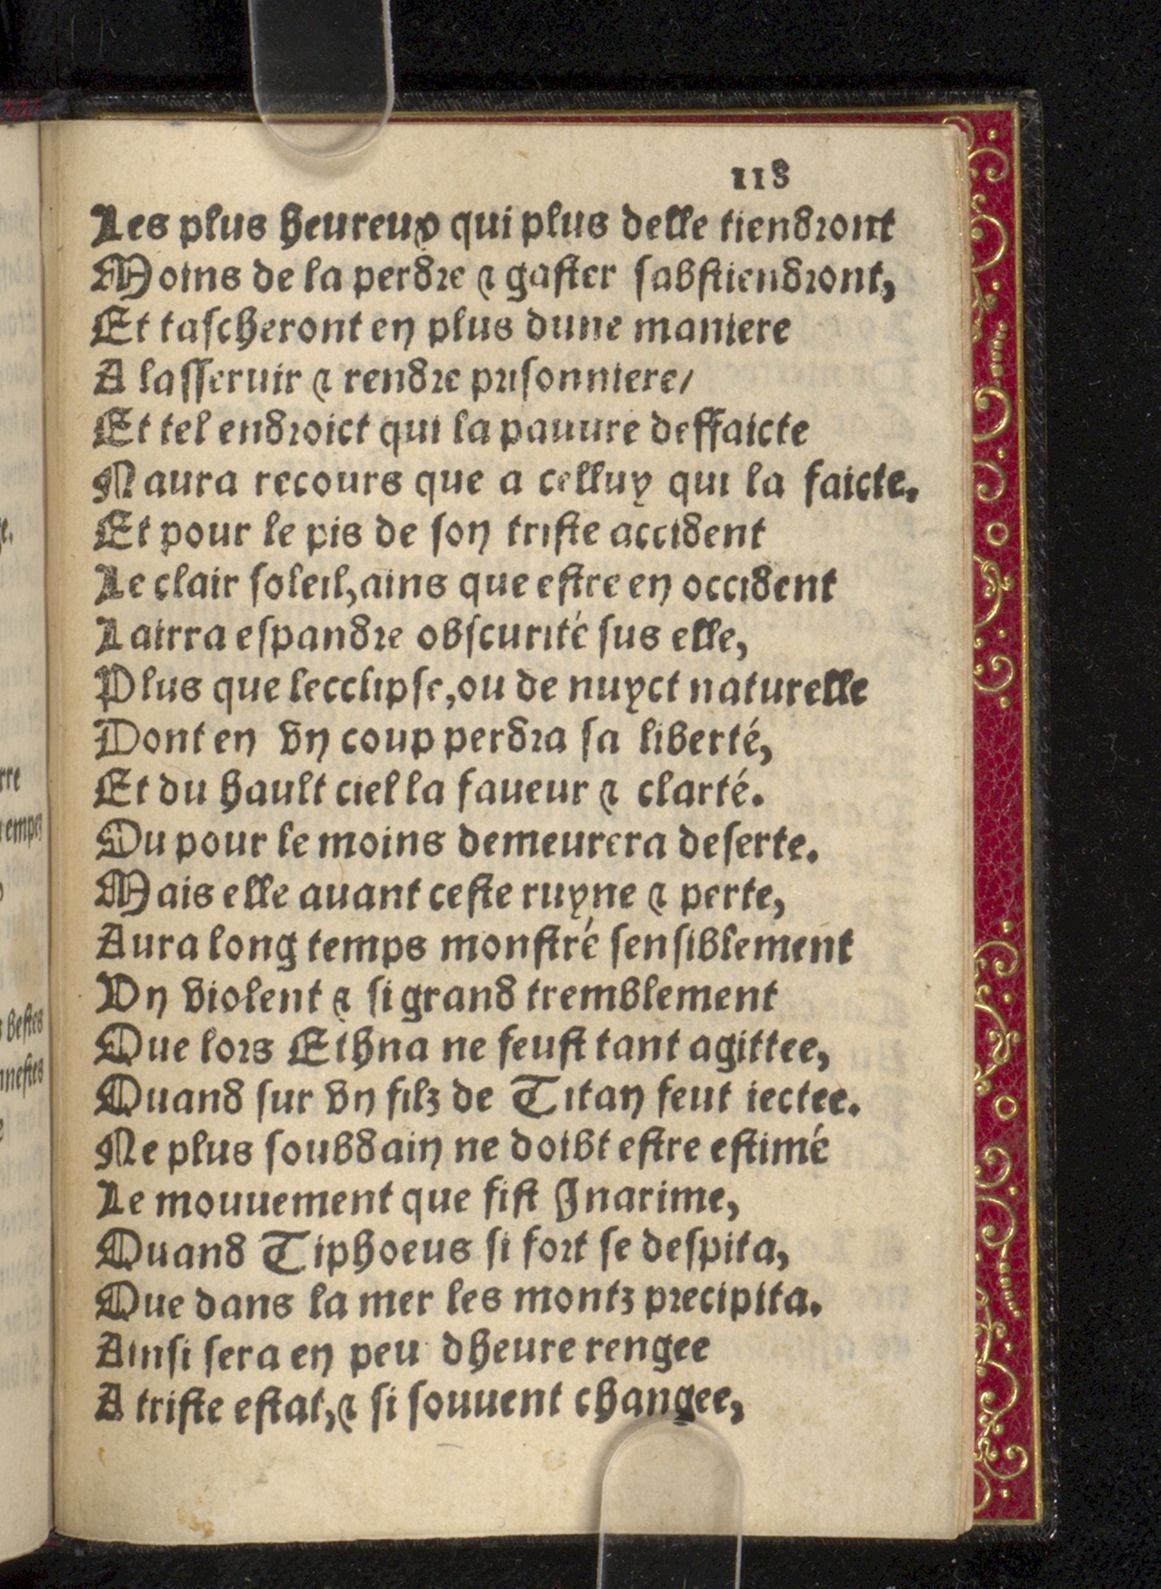 118
Les plus heureux qui plus delle tiendront
Moins de la perdre & gaster sabstiendront,
Et tascheront en plus dune maniere
A lasseruir & rendre prisonniere/
Et tel endroict qui la pauure deffaicte
Naura recours que a celluy qui la faicte.
Et pour le pis de son triste accident
Le clair soleil,ains que estre en occident
Lairra espandre obscurité sus elle,
Plus que lecclipse,ou de nuyct naturelle
Dont en vn coup perdra sa liberté,
Et du hault ciel la faueur & clarté.
Ou pour le moins demeurera deserte.
Mais elle auant ceste ruyne & perte,
Aura long temps monstré sensiblement
Vn violent & si grand tremblement
Que lors Ethna ne feust tant agittee,
Quand sur vn filz de Titan feut iectee.
Ne plus soubdain ne doibt estre estimé
Le mouuement que fist Inarime,
Quand Tiphoeus si fort se despita,
Que dans la mer les montz precipita.
Ainsi sera en peu dheure rengee
A triste estat,& si souuent changee,